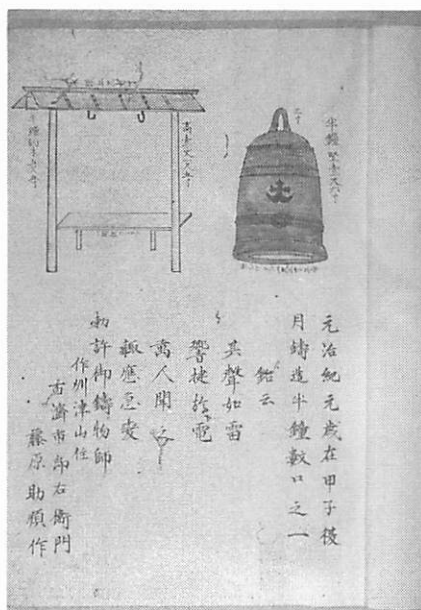 半鐘竪壱尺六寸
高壱丈弐尺五寸
元治紀元歳在甲子復
月鋳造半鐘数口之一
銘云
其聲如雷
響捷於電
萬人聞之
輙應急変
勅許御鋳物師
作州津山住
百濟市郎右衛門
藤原助順作